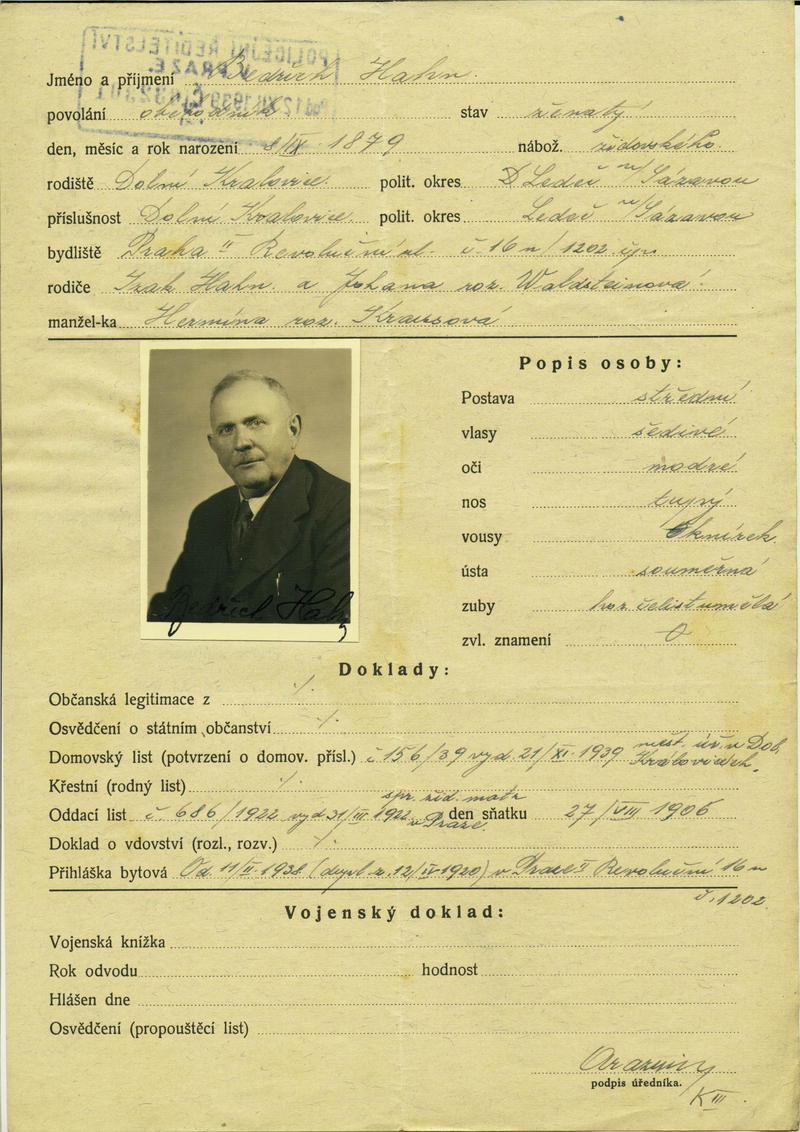 POLICEJNÍ ŘEDITELSTVÍ
V PRAZE.
Jméno a příjmení Bedřich Hahn.
povolání obchodník stav ženatý
den, měsíc a rok narození 8/IX 1879 nábož. židovského.
rodiště Dolní Kralovice. polit. okres Ledeč n/Sázavou
příslušnost Dolní Kralovice. polit. okres Ledeč n/Sázavou
bydliště Praha II Revoluční ul. č. 16 n/1202 čp.
rodiče Izak Hahn a Johana roz. Waldsteinová.
manžel-ka Hermína roz. Krausová
Popis osoby:
Postava střední
vlasy šedivé
oči modré
nos tupý
vousy knírek
ústa souměrná
zuby hor. čelist umělá
zvl. znamení 0
Bedřich Hahn
Doklady:
Občanská legitimace z ·/·
Osvědčení o státním občanství ·/·
Domovský list (potvrzení o domov. přísl.) č 156/39 vyd. 21/XI. 1939 měst. úř. v Dol. Kralovicích.
Křestní (rodný list) ·/·
Oddací list č. 686/1922 vyd 31/III 1922 spr. žid. matr v Praze. den sňatku 27/VIII 1906
Doklad o vdovství (rozl., rozv.) ·/·
Přihláška bytová Od 11/II. 1938 ( 12/IV 1920) v Praze II Revoluční 16 n
č. 1202.
Vojenský doklad:
Vojenská knížka
Rok odvodu hodnost
Hlášen dne
Osvědčení (propouštěcí list)
podpis úředníka.
K III